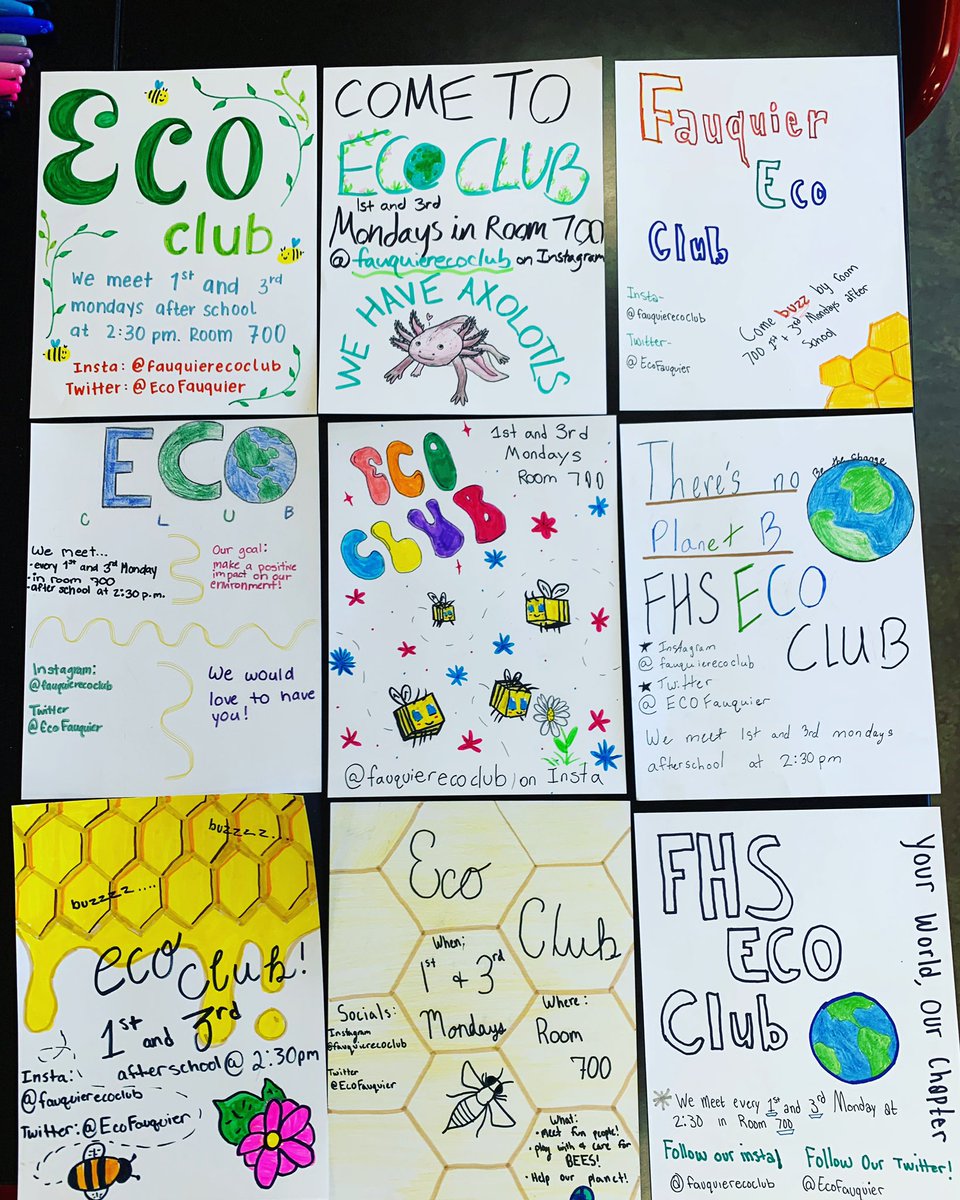 Eco
club
We meet 1st and 3rd
mondays after school
at 2:30 pm. Room 700
Insta: @fauquierecoclub
Twitter: @EcoFauquier
COME TO
ECO CLUB
1st and 3rd
Mondays in Room 700
@fauquierecoclub on Instagram
WE HAVE AXOLOTLS
Fauquier
Eco
Club
Insta-
@fauquierecoclub
Twitter-
@EcoFauquier
Come buzz by room
700 1st + 3rd Mondays after
School
ECO
C L U B
We meet...
•every 1st and 3rd Monday
•in room 700
•after school at 2:30 p.m.
Our goal:
make a positive
impact on our
environment!
Instagram:
@fauquierecoclub
Twitter
@EcoFauquier
We would
love to have
you!
ECO
CLUB
1st and 3rd
Mondays
Room 700
@fauquierecoclub on Insta
There's no
Planet B
Be the change
FHS ECO
CLUB
★ Instagram
@ fauquierecoclub
★ Twitter
@ ECOFauquier
We meet 1st and 3rd mondays
afterschool at 2:30pm
buzzzz....
buzzzz....
eco club!
1st and 3rd
afterschool @ 2:30pm
Insta:
@fauquierecoclub
Twitter: @EcoFauquier
Eco
Club
When;
1st + 3rd
Mondays
Socials:
Instagram
@fauquierecoclub
Twitter
@EcoFauquier
Where:
Room
700
What:
• Meet fun people!
• play with & care for
BEES!
• Help our planet!
FHS
ECO
Club
Your World, Our Chapter
We meet every 1st and 3rd Monday at
2:30 in Room 700
Follow our insta!
@fauquierecoclub
Follow Our Twitter!
@EcoFauquier